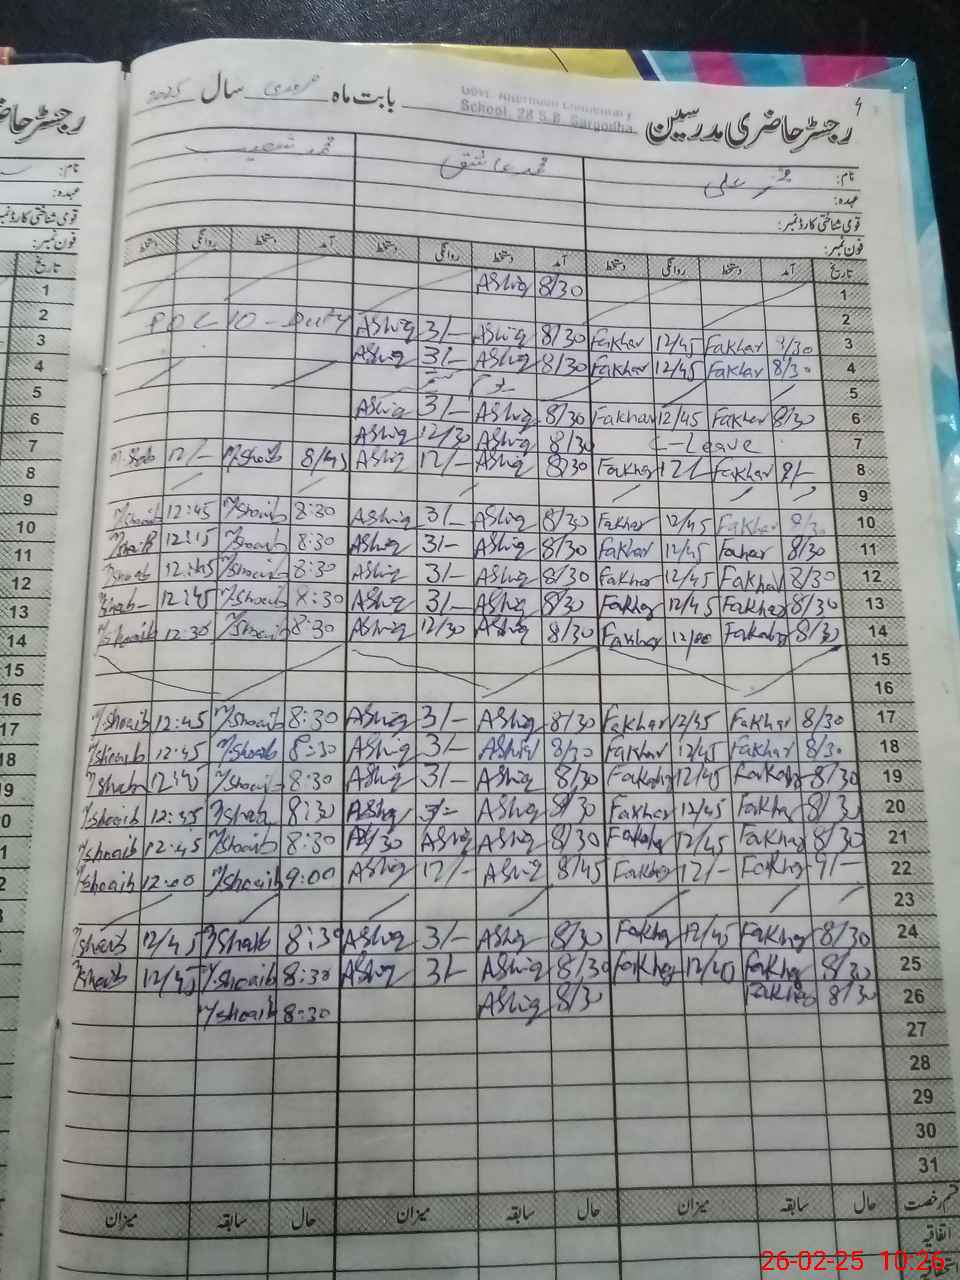 رجسٹر حاضری مدرسین بابت ماہ فروری سال 2025
School, 28 S.B. Sargodha
نام: فخر علی محمد عاشق محمد شعیب
عہدہ:
قومی شناختی کارڈ نمبر:
فون نمبر:
تاریخ آمد دستخط روانگی دستخط آمد دستخط روانگی دستخط آمد دستخط روانگی دستخط
1 8/30 Ashiq
2
3 8/30 Fakhar 12/45 Fakhar 8/30 Ashiq 3/- Ashiq Duty
4 8/30 Fakhar 12/45 Fakhar 8/30 Ashiq 3/- Ashiq
5
6 8/30 Fakhar 12/45 Fakhar 8/30 Ashiq 3/- Ashiq
7 C-Leave 8/30 Ashiq 12/30 Ashiq
8 Fakhar 12/- Fakhar 8/30 Ashiq 12/- Ashiq 8/45 M.Shoaib 12/- M.Shoaib
9
10 8/30 Fakhar 12/45 Fakhar 8/30 Ashiq 3/- Ashiq 8:30 M/Shoaib 12:45 M/Shoaib
11 8/30 Fakhar 12/45 Fakhar 8/30 Ashiq 3/- Ashiq 8:30 M/Shoaib M/Shoaib
12 8/30 Fakhar 12/45 Fakhar 8/30 Ashiq 3/- Ashiq 8:30 M/Shoaib 12:45 M/Shoaib
13 8/30 Fakhar 12/45 Fakhar 8/30 Ashiq 3/- Ashiq 8:30 M/Shoaib 12:45 M/Shoaib
14 8/30 Fakhar 12/00 Fakhar 8/30 Ashiq 12/30 Ashiq 8:30 M/Shoaib 12:30 M/Shoaib
15
16
17 8/30 Fakhar Fakhar 8/30 Ashiq 3/- Ashiq 8:30 M/Shoaib 12:45 M/Shoaib
18 8/30 Fakhar 12/45 Fakhar 8/30 Ashiq 3/- Ashiq 8:30 M/Shoaib 12:45 M/Shoaib
19 8/30 Fakhar 12/45 Fakhar 8/30 Ashiq 3/- Ashiq 8:30 M/Shoaib 12:45 M/Shoaib
20 8/30 Fakhar 12/45 Fakhar 8/30 Ashiq 3/- Ashiq 8:30 M/Shoaib M/Shoaib
21 8/30 Fakhar 12/45 Fakhar 8/30 Ashiq Ashiq 8:30 M/Shoaib 12:45 M/Shoaib
22 9/- Fakhar 12/- Fakhar 8/45 Ashiq 12/- Ashiq 9:00 M/Shoaib 12:00 M/Shoaib
23
24 8/30 Fakhar 12/45 Fakhar 8/30 Ashiq 3/- Ashiq 8:30 M/Shoaib 12/45 M/Shoaib
25 8/30 Fakhar Fakhar 8/30 Ashiq 3/- Ashiq 8:30 M/Shoaib 12/45 M/Shoaib
26 8/30 Fakhar 8/30 Ashiq 8:30 M/Shoaib
27
28
29
30
31
قسم رخصت حال سابقہ میزان حال سابقہ میزان حال سابقہ میزان
اتفاقیہ
26-02-25 10:26